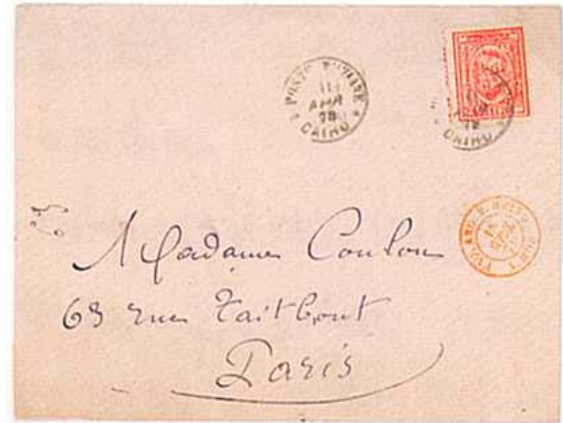 POSTE EGIZIANE
11
APR
78
CAIRO
CAIRO
Madame Coulon
63 rue Taitbout
Paris